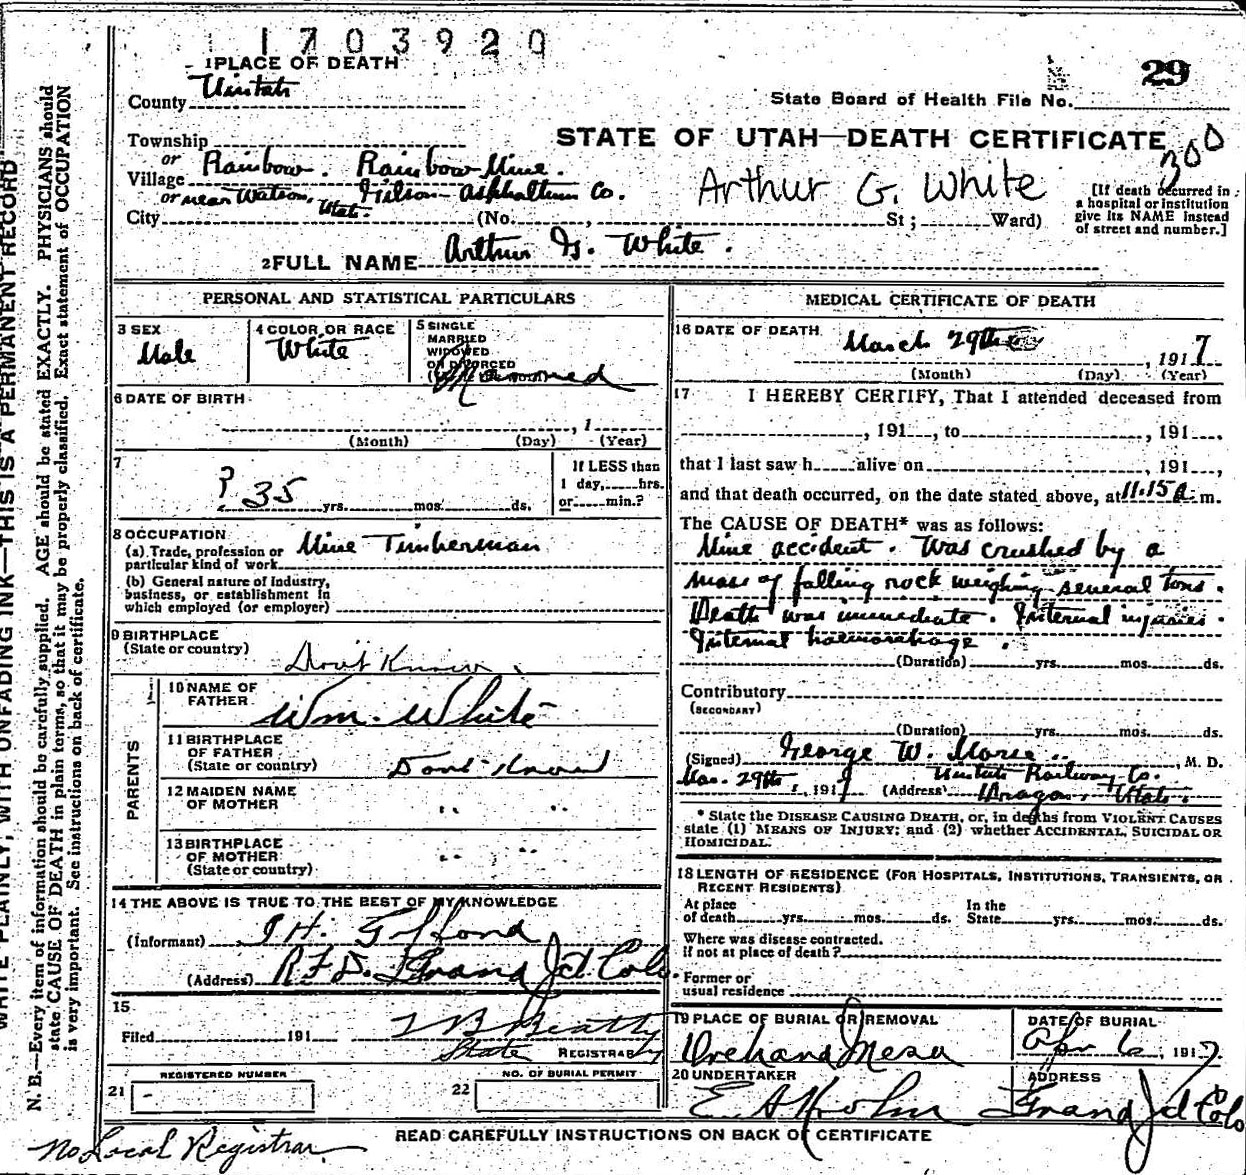 1703920
1 PLACE OF DEATH
29
County Uintah
State Board of Health File No.
Township
STATE OF UTAH—DEATH CERTIFICATE
300
or
Village Rainbow. Rainbow Mine.
or near Watson, Utah. Gilson Asphaltum Co.
Arthur G. White
[If death occurred in a hospital or institution give its NAME instead of street and number.]
City (No. , St; Ward)
2 FULL NAME Arthur G. White.
PERSONAL AND STATISTICAL PARTICULARS
3 SEX
Male
4 COLOR OR RACE
White
5 SINGLE
MARRIED
WIDOWED
OR DIVORCED
6 DATE OF BIRTH
, 1
(Month) (Day) (Year)
7
? 35 yrs. mos. ds.
If LESS than
1 day, hrs.
or min.?
8 OCCUPATION
(a) Trade, profession or
particular kind of work Mine Timberman
(b) General nature of Industry,
business, or establishment in
which employed (or employer)
9 BIRTHPLACE
(State or country) Don't Know.
PARENTS
10 NAME OF
FATHER Wm. White
11 BIRTHPLACE
OF FATHER
(State or country) Dont Know
12 MAIDEN NAME
OF MOTHER " "
13 BIRTHPLACE
OF MOTHER
(State or country) " "
14 THE ABOVE IS TRUE TO THE BEST OF MY KNOWLEDGE
(Informant)
(Address) R.F.D. Grand Jct. Colo.
15
Filed 191 T B Beatty
State REGISTRAR
REGISTERED NUMBER
21
NO. OF BURIAL PERMIT
22
MEDICAL CERTIFICATE OF DEATH
16 DATE OF DEATH
March 29th , 1917
(Month) (Day) (Year)
17 I HEREBY CERTIFY, That I attended deceased from
, 191 , to , 191 ,
that I last saw h alive on , 191 ,
and that death occurred, on the date stated above, at 11.15 a. m.
The CAUSE OF DEATH* was as follows:
Mine accident. Was crushed by a
mass of falling rock weighing several tons.
Death was immediate. Internal injuries.
Internal haemorrhage.
(Duration) yrs. mos. ds.
Contributory
(SECONDARY)
(Duration) yrs. mos. ds.
(Signed) George W. , M. D.
Mar. 29th, 1917 (Address) Uintah Railway Co.
Dragon, Utah.
* State the DISEASE CAUSING DEATH, or, in deaths from VIOLENT CAUSES
state (1) MEANS OF INJURY; and (2) whether ACCIDENTAL, SUICIDAL OR
HOMICIDAL.
18 LENGTH OF RESIDENCE (FOR HOSPITALS, INSTITUTIONS, TRANSIENTS, OR
RECENT RESIDENTS)
At place
of death yrs. mos. ds.
In the
State yrs. mos. ds.
Where was disease contracted.
if not at place of death?
Former or
usual residence
19 PLACE OF BURIAL OR REMOVAL
Orchard Mesa
DATE OF BURIAL
Apr 6, 1917.
20 UNDERTAKER
ADDRESS
Grand Jct Colo
READ CAREFULLY INSTRUCTIONS ON BACK OF CERTIFICATE
No Local Registrar.
WRITE PLAINLY, WITH UNFADING INK—THIS IS A PERMANENT RECORD
N. B.—Every item of information should be carefully supplied. AGE should be stated EXACTLY. PHYSICIANS should
state CAUSE OF DEATH in plain terms, so that it may be properly classified. Exact statement of OCCUPATION
is very important. See instructions on back of certificate.